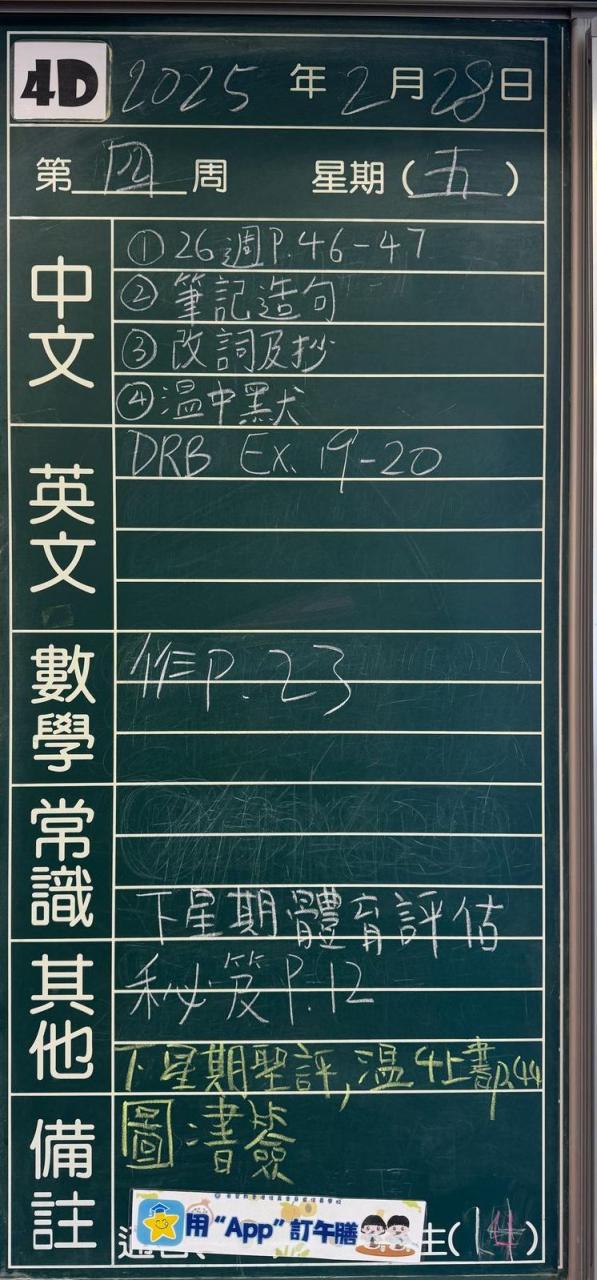 4D 2025 年 2 月 28 日
第 四 周 星期 ( 五 )
中文
① 26週P.46-47
② 筆記造句
③ 改詞及抄
④ 溫中默
英文
DRB Ex. 19-20
數學
作P.23
常識
下星期體育評估
其他
秘笈P.12
下星期聖評,溫4上書P.44
備註
圖書簽
用“App”訂午膳
生( 14 )